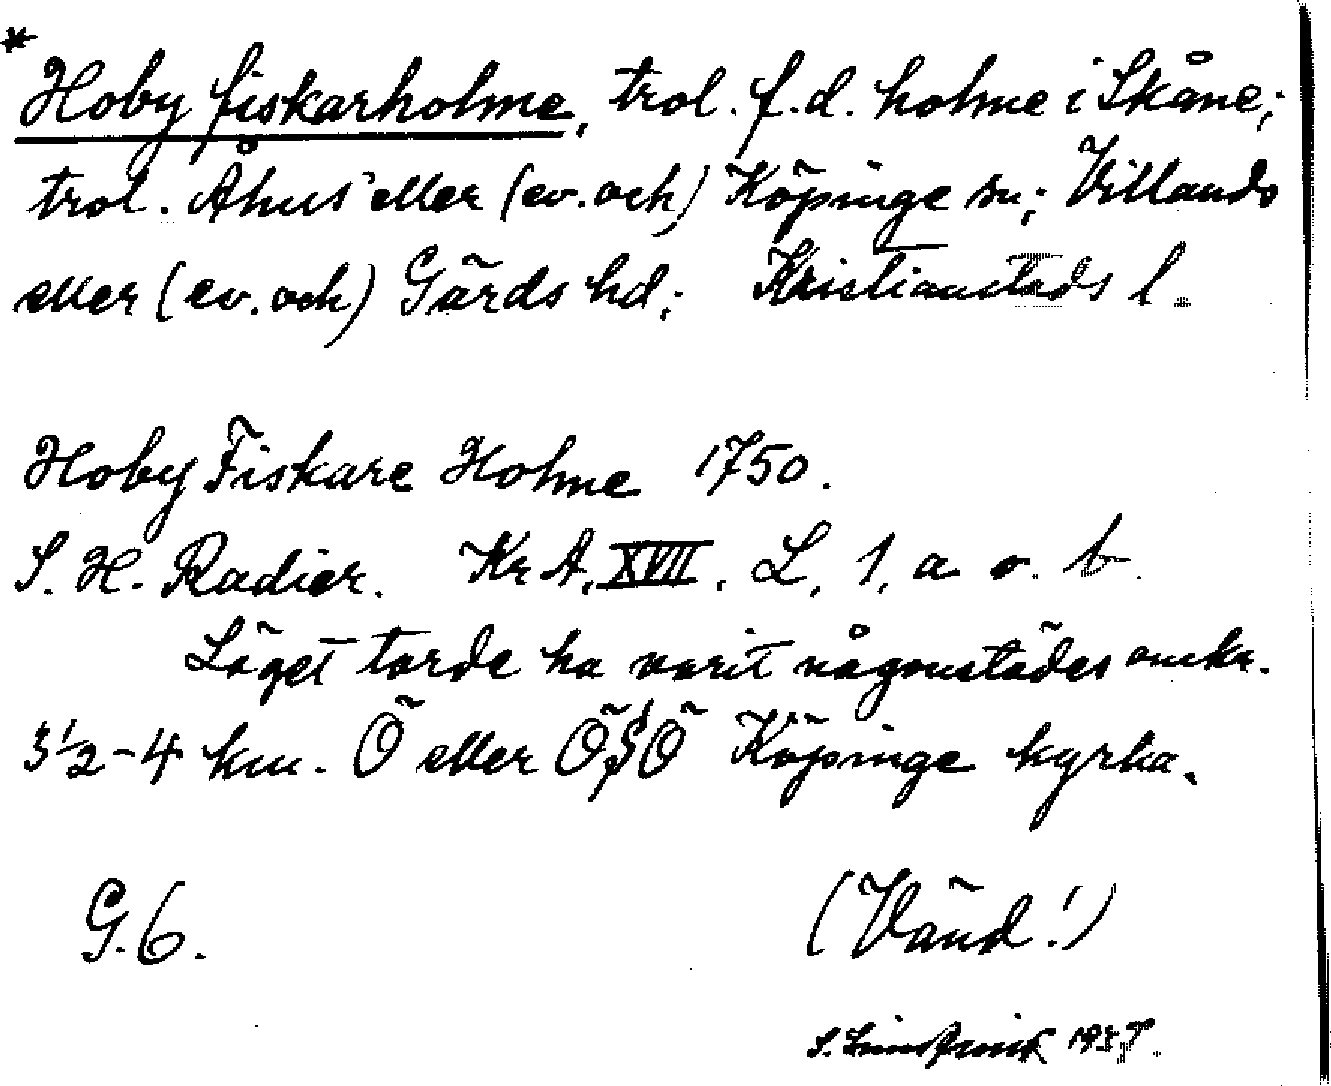 * Hoby fiskarholme, trol. f.d. holme i Skåne;
trol. Åhus eller (ev. och) Köpinge sn; Villands
eller (ev. och) Gärds hd; Kristianstads l.
Hoby Fiskare Holme 1750.
S. H. Radier. Kr A, XVII, L, 1, a o. b.
Läget torde ha varit någonstädes omkr.
3 1/2 - 4 km. Ö eller ÖSÖ Köpinge kyrka.
G. 6.
(Vänd!)
S. 1937.